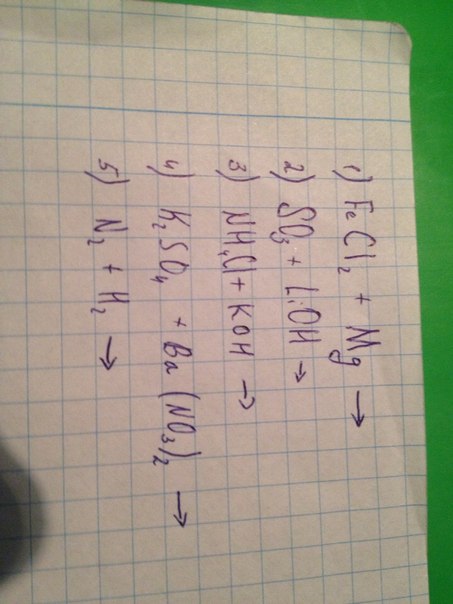 1) FeCl₂ + Mg →
2) SO₃ + LiOH →
3) NH₄Cl + KOH →
4) K₂SO₄ + Ba(NO₃)₂ →
5) N₂ + H₂ →